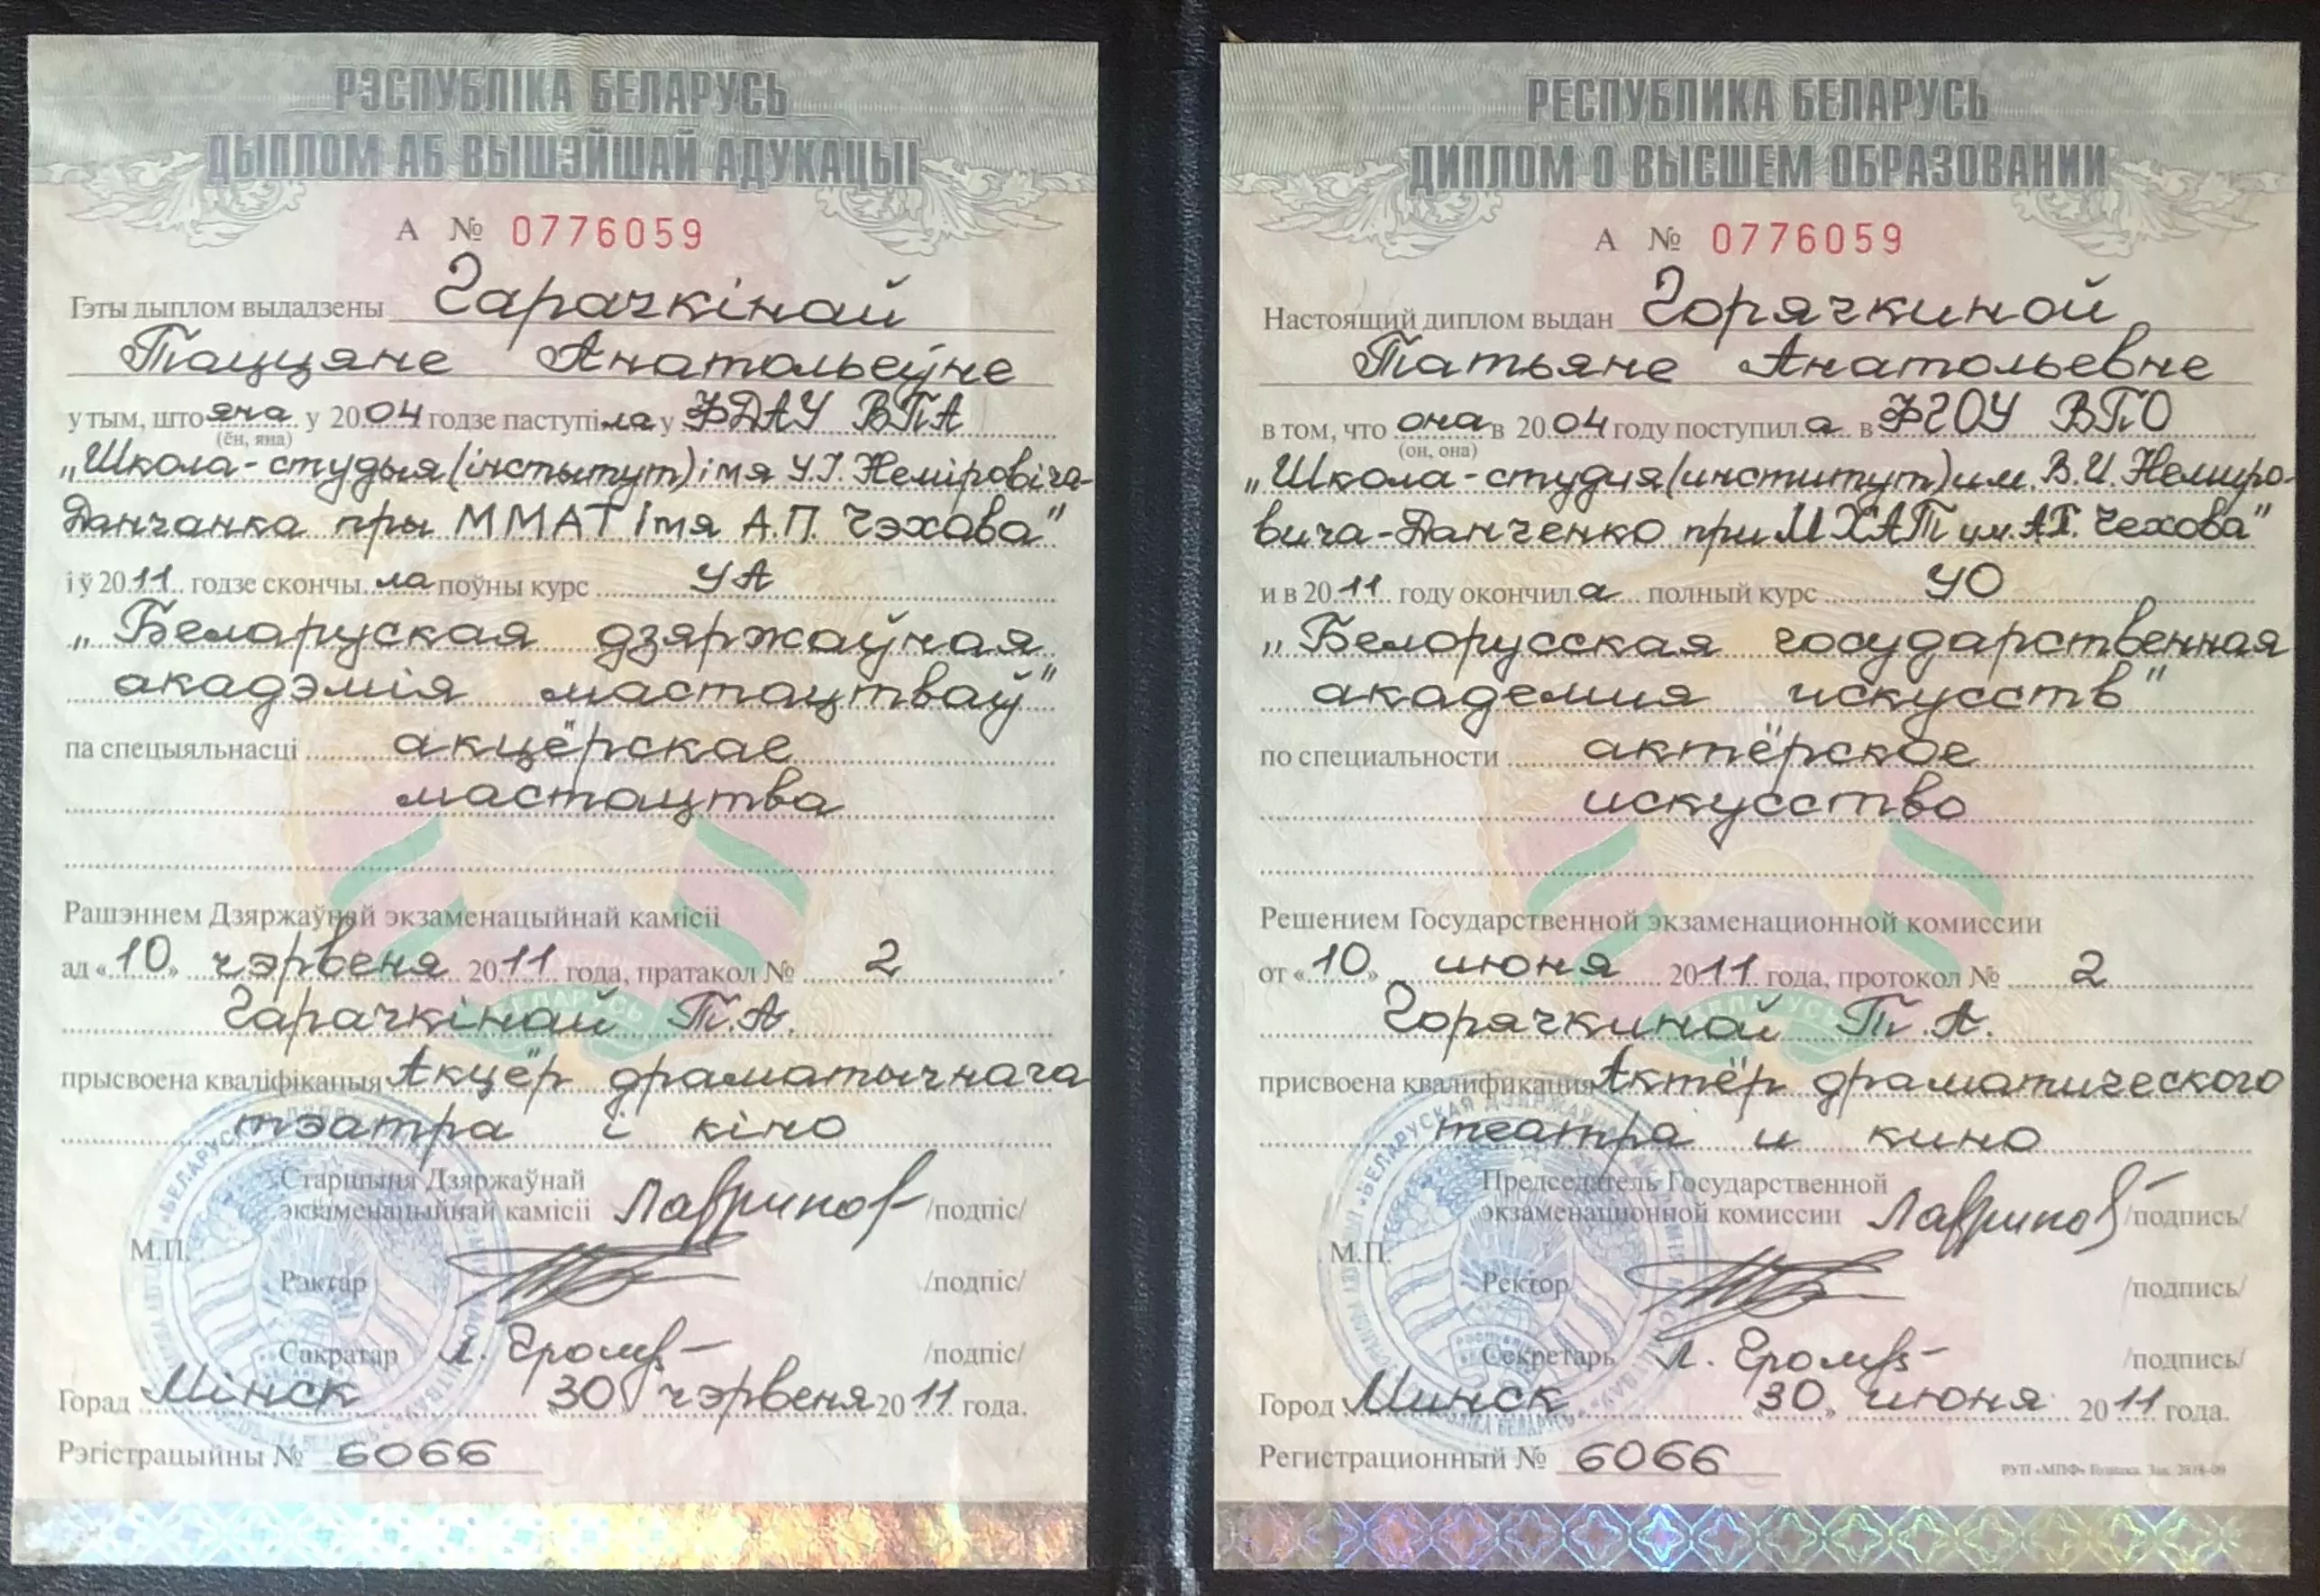 РЭСПУБЛІКА БЕЛАРУСЬ
ДЫПЛОМ АБ ВЫШЭЙШАЙ АДУКАЦЫІ
А № 0776059
Гэты дыплом выдадзены Гарачкінай
Таццяне Анатольеўне
у тым, што яна у 2004 годзе паступіла у ФДАУ ВПА
(ён, яна)
„Школа-студыя (інстытут) імя У.І. Неміровіча-
Данчанка пры ММАТ імя А.П. Чэхава"
і ў 2011 годзе скончыла поўны курс УА
„Беларуская дзяржаўная
акадэмія мастацтваў"
па спецыяльнасці акцёрскае
мастацтва
Рашэннем Дзяржаўнай экзаменацыйнай камісіі
ад «10» чэрвеня 2011 года, пратакол № 2
Гарачкінай Т.А.
прысвоена кваліфікацыя Акцёр драматычнага
тэатра і кіно
Старшыня Дзяржаўнай
экзаменацыйнай камісіі Лавринов /подпіс/
М.П.
Рэктар /подпіс/
Сакратар Л. /подпіс/
Горад Мінск «30» чэрвеня 2011 года.
Рэгістрацыйны № 6066
РЕСПУБЛИКА БЕЛАРУСЬ
ДИПЛОМ О ВЫСШЕМ ОБРАЗОВАНИИ
А № 0776059
Настоящий диплом выдан Горячкиной
Татьяне Анатольевне
в том, что она в 2004 году поступила в ФГОУ ВПО
(он, она)
„Школа-студия (институт) им. В.И. Немиро-
вича-Данченко при МХАТ им. А.П. Чехова"
и в 2011 году окончила полный курс УО
„Белорусская государственная
академия искусств"
по специальности актёрское
искусство
Решением Государственной экзаменационной комиссии
от «10» июня 2011 года, протокол № 2
Горячкиной Т.А.
присвоена квалификация Актёр драматического
театра и кино
Председатель Государственной
экзаменационной комиссии Лавринов /подпись/
М.П.
Ректор /подпись/
Секретарь Л. /подпись/
Город Минск «30» июня 2011 года.
Регистрационный № 6066
РУП «МПФ» Гознака.